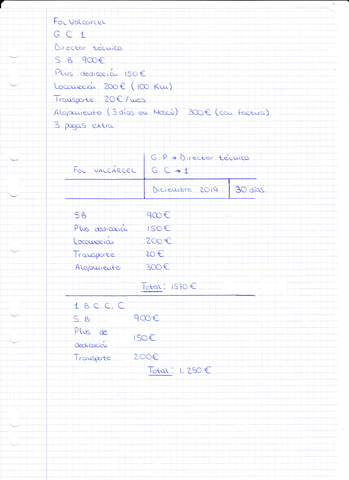 Fol Valcarcel
G. C 1
Director técnico
S. B 900€
Plus dedicación 150€
Locomoción 200€ (100 Km)
Transporte 20€/mes
Alojamiento (3 días en Moscú) 300€ (con factura)
3 pagas extra.
G. P → Director técnico
FOL VALCÁRCEL G. C → 1
Diciembre 2019 30 días
S.B 900€
Plus dedicación 150€
Locomoción 200€
Transporte 20€
Alojamiento 300€
Total: 1570€
1 B. C. C. C
S. B 900€
Plus de
dedicación 150€
Transporte 200€
Total: 1.250€